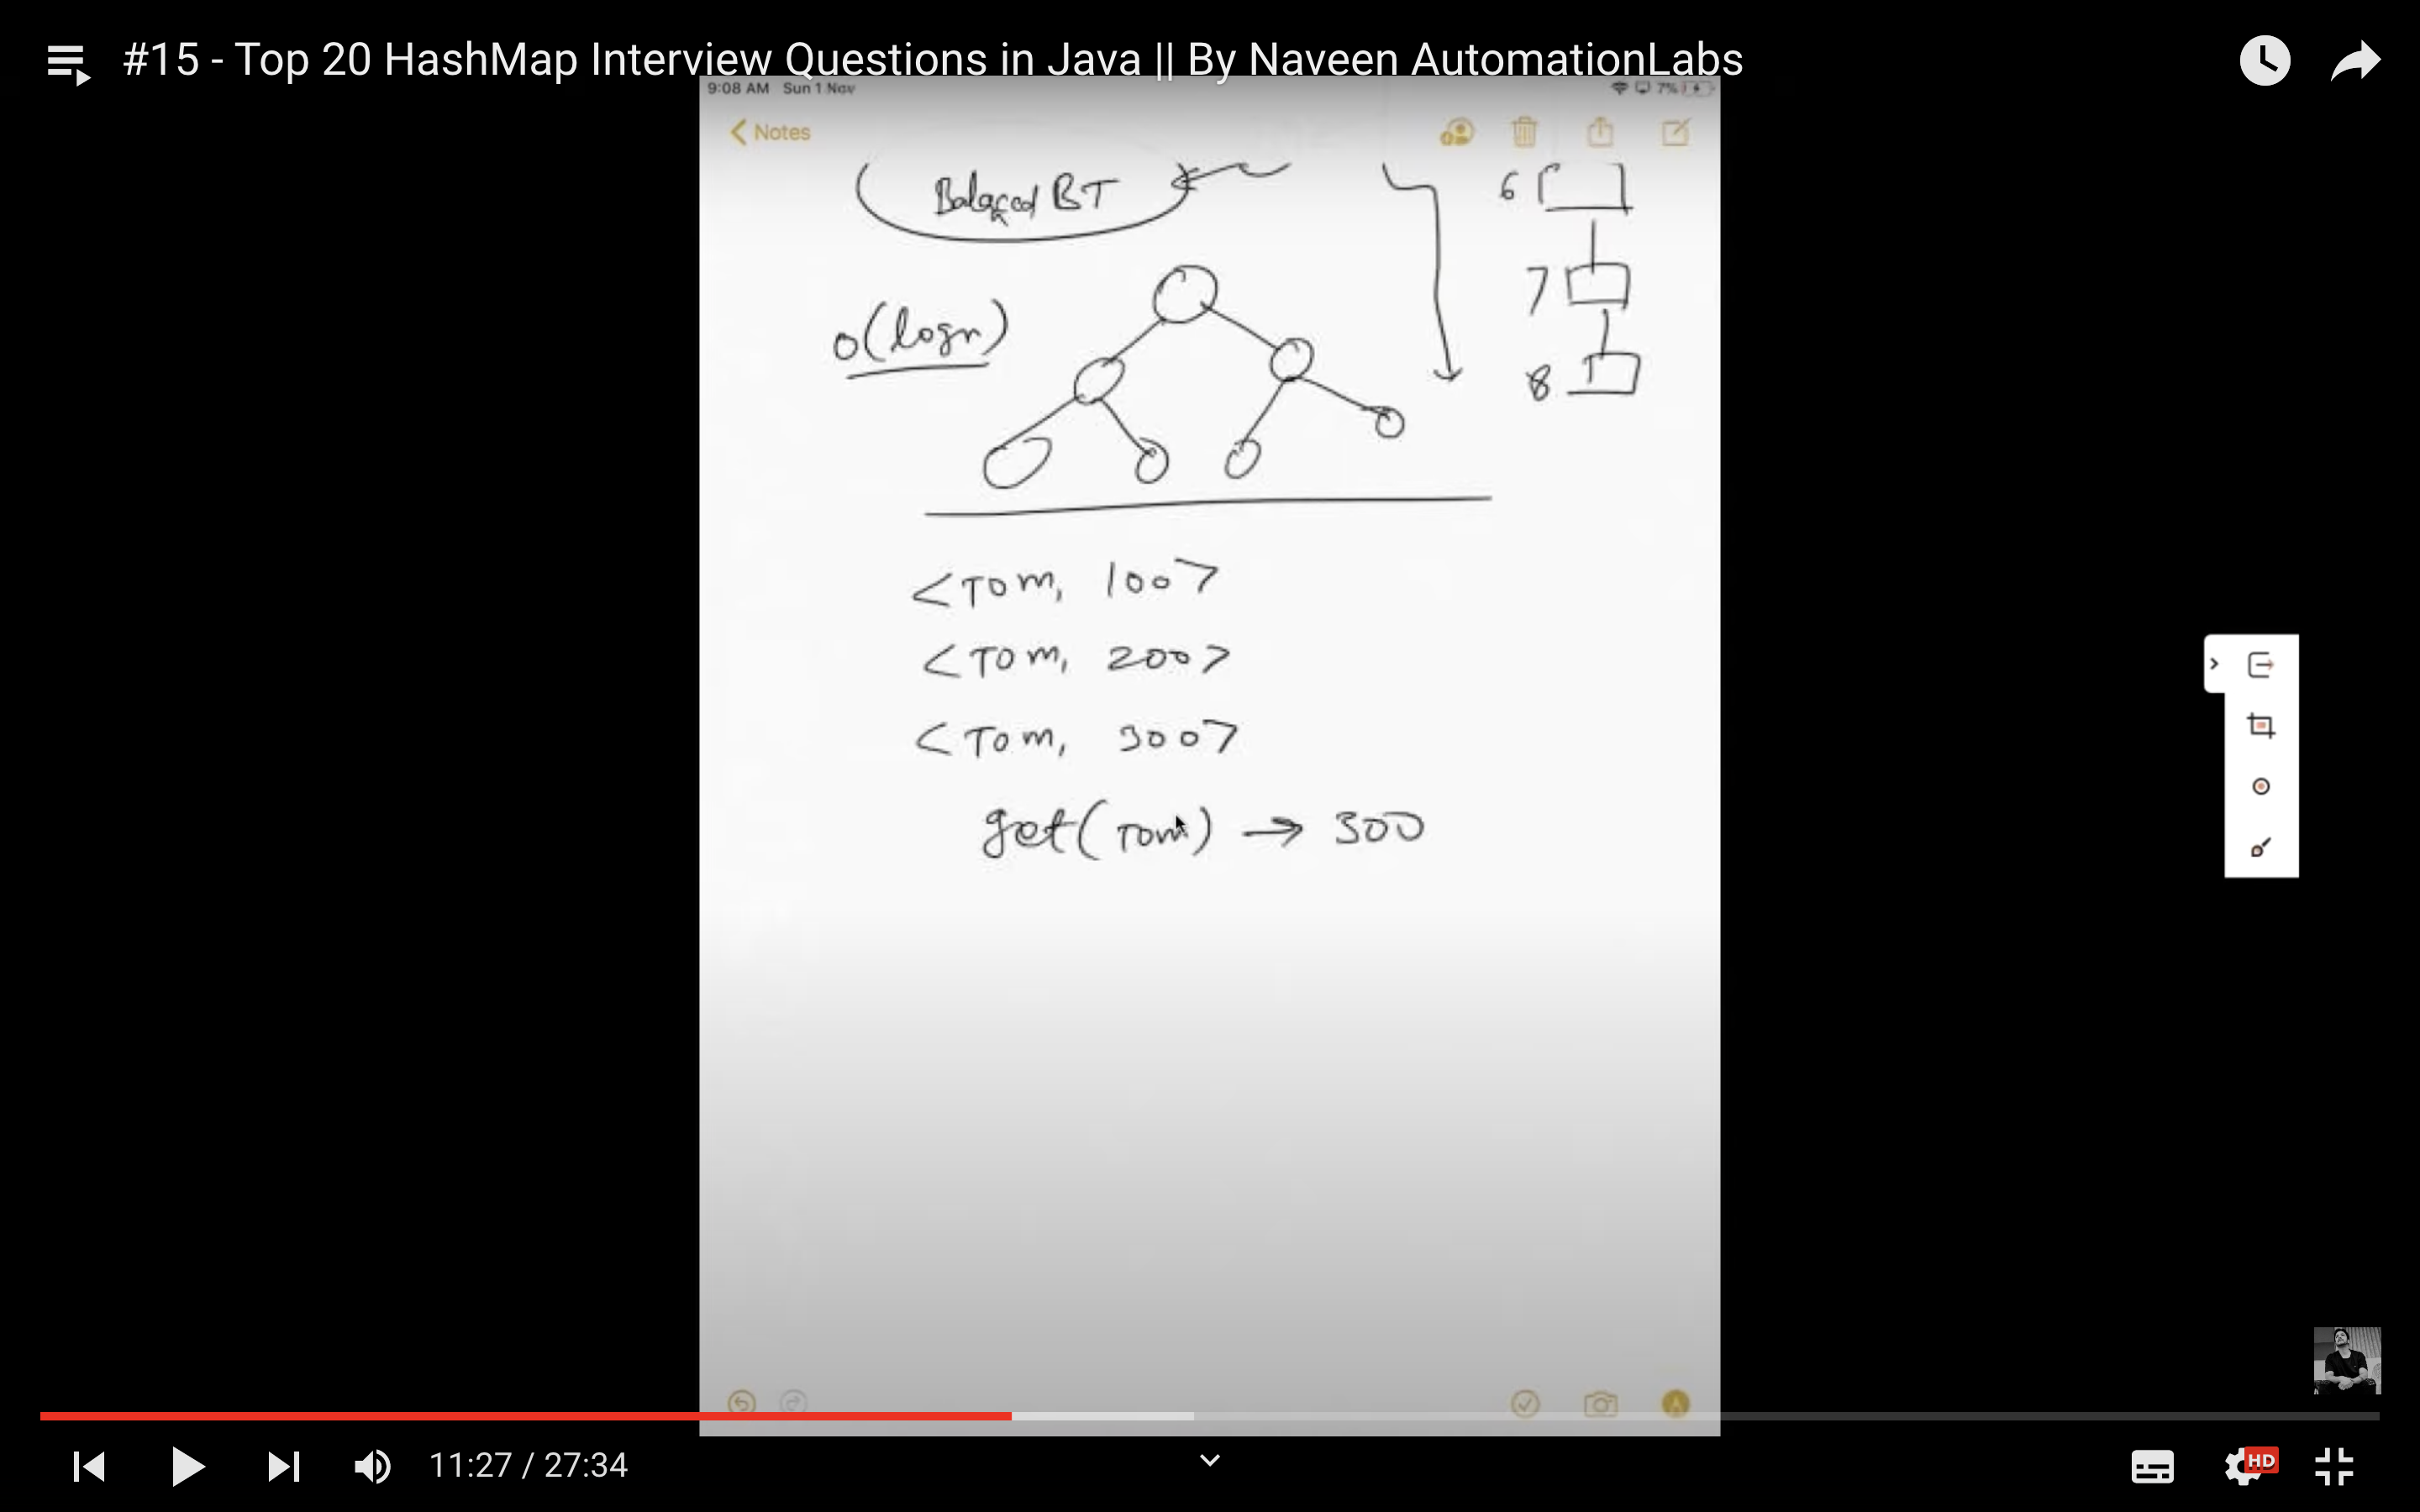 #15 - Top 20 HashMap Interview Questions in Java || By Naveen AutomationLabs
9:08 AM Sun 1 Nov 7%
Notes
Balaced BT
6
O(logn)
7
8
<Tom, 100>
<Tom, 200>
<Tom, 300>
get(Tom) → 300
11:27 / 27:34
HD